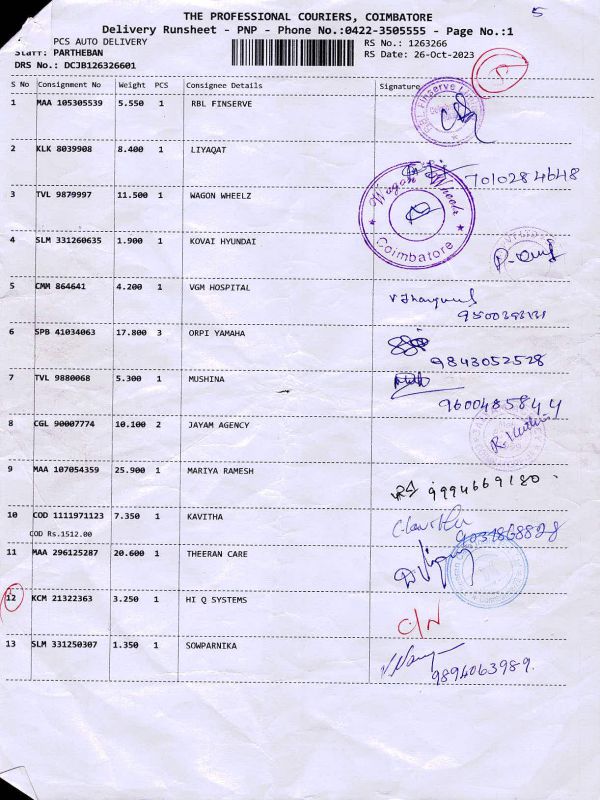 5
THE PROFESSIONAL COURIERS, COIMBATORE
Delivery Runsheet - PNP - Phone No.:0422-3505555 - Page No.:1
PCS AUTO DELIVERY
RS No.: 1263266
Staff: PARTHEBAN
RS Date: 26-Oct-2023
DRS No.: DCJB126326601
S No Consignment No Weight PCS Consignee Details Signature
1 MAA 105305539 5.550 1 RBL FINSERVE
2 KLK 8039908 8.400 1 LIYAQAT
7010284648
3 TVL 9879997 11.500 1 WAGON WHEELZ
Wagon Wheelz
Coimbatore
4 SLM 331260635 1.900 1 KOVAI HYUNDAI
5 CMM 864641 4.200 1 VGM HOSPITAL
6 SPB 41034063 17.800 3 ORPI YAMAHA
9843052528
7 TVL 9880068 5.300 1 MUSHINA
9600485844
8 CGL 90007774 10.100 2 JAYAM AGENCY
9 MAA 107054359 25.900 1 MARIYA RAMESH
9994669180
10 COD 1111971123 7.350 1 KAVITHA
COD Rs.1512.00
11 MAA 296125287 20.600 1 THEERAN CARE
12 KCM 21322363 3.250 1 HI Q SYSTEMS
C/N
13 SLM 331250307 1.350 1 SOWPARNIKA
9894063989.